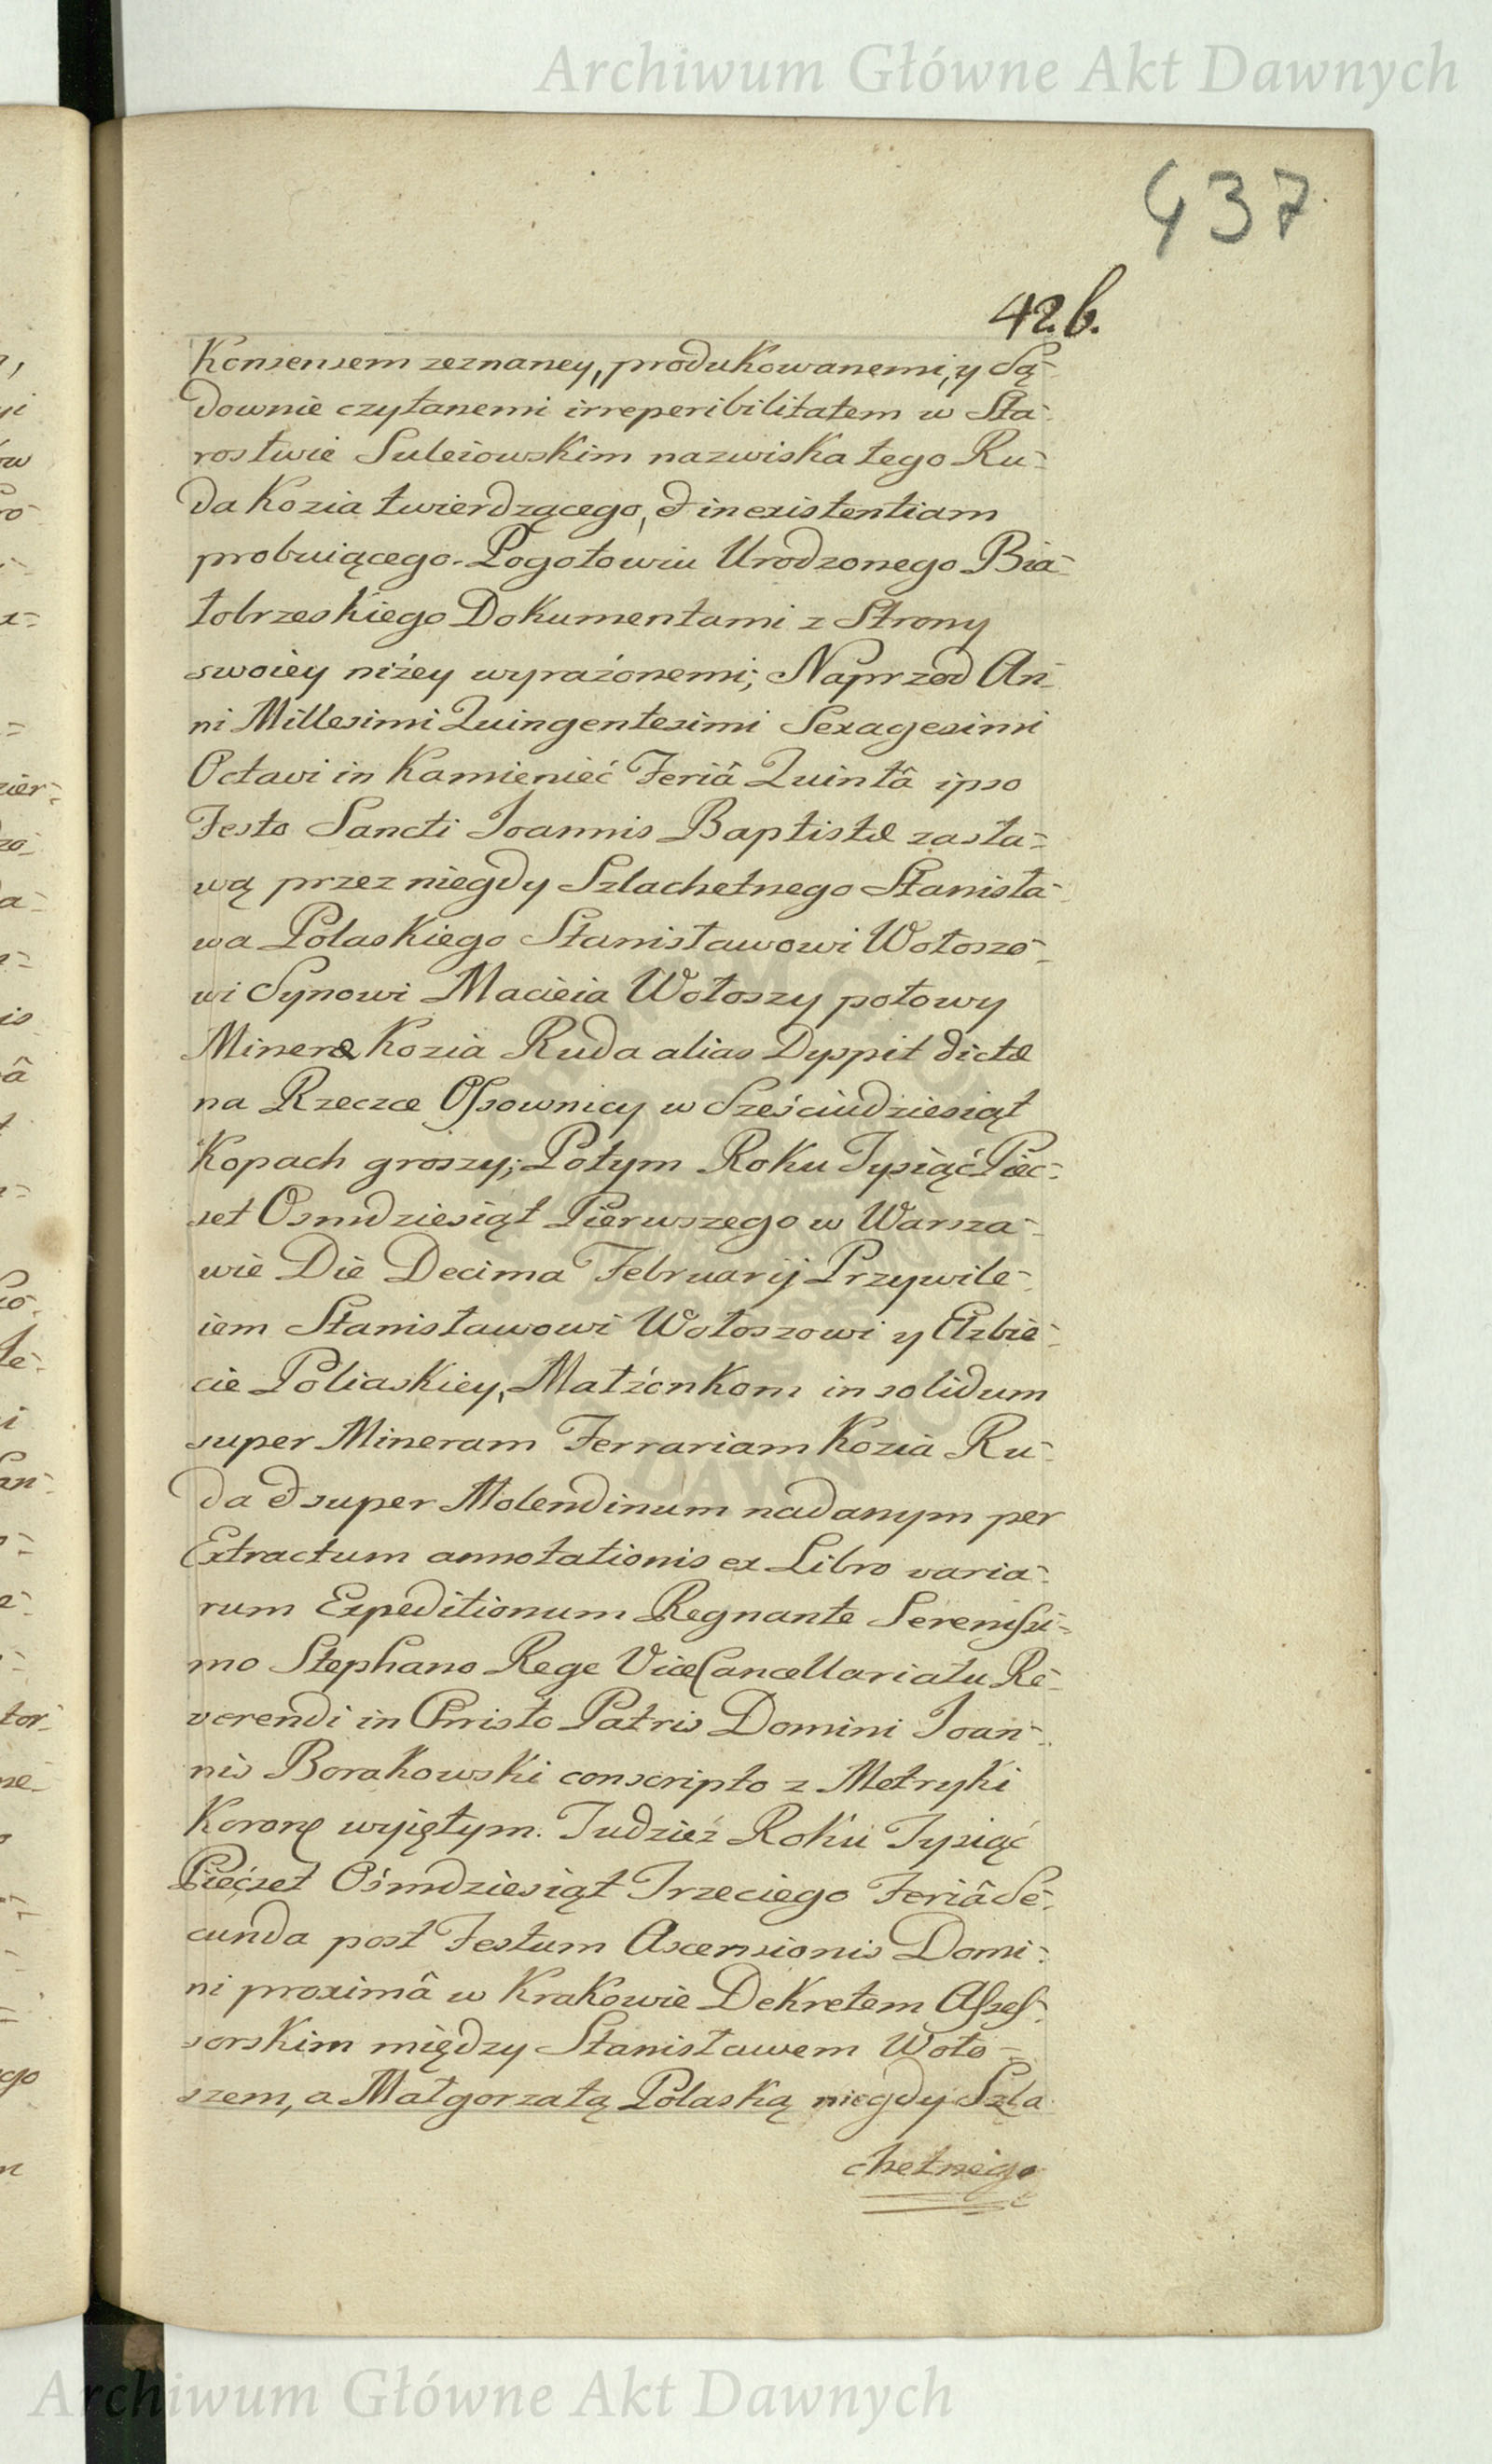 Archiwum Główne Akt Dawnych
437
42.b.
Konsensem zeznaney, produkowanemi, y Są=
downie czytanemi irreperibilitatem w Sta=
rostwie Suleiowskim nazwiska tego Ru=
da Kozia twierdzącego, & inexistentiam
probuiącego. Pogotowiu Urodzonego Bia=
łobrzeskiego Dokumentami z Strony
swoiey niżey wyrażonemi; Naprzod An=
ni Millesimi Quingentesimi Sexagesimi
Octavi in Kamienieć Feriâ Quintâ ipso
Festo Sancti Joannis Baptistæ zasta=
wą przez niegdy Szlachetnego Stanisła=
wa Polaskiego Stanisławowi Wołoszo=
wi Synowi Macieia Wołoszy połowy
Mineræ Kozia Ruda alias Dyspit dictæ
na Rzeczce Ossownicy w Sześciudziesiąt
Kopach groszy; Potym Roku Tysiąć Pięc=
set Osmdziesiąt Pierwszego w Warsza=
wie Die Decima Februarij Przywile=
iem Stanisławowi Wołoszowi y Elzbie=
cie Poliaskiey, Małżonkom in solidum
super Mineram Ferrariam Kozia Ru=
da & super Molendinum nadanym per
Extractum annotationis ex Libro varia=
rum Expeditionum Regnante Serenissi=
mo Stephano Rege ViceCancellariatu Re=
verendi in Christo Patris Domini Joan=
nis Borakowski conscripto z Metryki
Koronę wyiętym. Tudzież Roku Tysiąć
Piećzet Ośmdziesiąt Trzeciego Feriâ Se=
cunda post Festum Ascensionis Domi=
ni proximâ w Krakowie Dekretem Asses=
sorskim między Stanisławem Woło=
szem, a Małgorzatą Polaską niegdy Szla
chetnego
Archiwum Główne Akt Dawnych